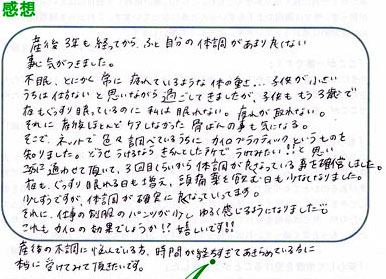 感想
産後3年も経ってから、ふと自分の体調があまり良くない
事に気がつきました。
不眠、とにかく常に疲れているような体の重さ…子供が小さい
うちは仕方ないと思いながら過ごしてきましたが、子供ももう3歳で
夜もぐっすり眠っているのに私は眠れない。疲れが取れない。
それに産後ほとんどケアしなかった骨ばんの事も気になる。
そこで、ネットで色々調べているうちに、カイロプラクティックというものを
知りました。どうせうけるならきちんとした所でうけたい!!と思い
通わせて頂いて、3回目くらいから体調が良くなっている事を確信しました。
夜も、ぐっすり眠れる日も増え、頭痛薬を飲む日も少なくなりました。
少しずつですが、体調が確実に良くなっていってます。
それに、仕事の制服のパンツが少しゆるく感じるようになりました
これもカイロの効果でしょうか!!嬉しいです!!
産後の不調に悩んでいる方、時間が経ちすぎてあきらめている方に
受けてみて頂きたいです。